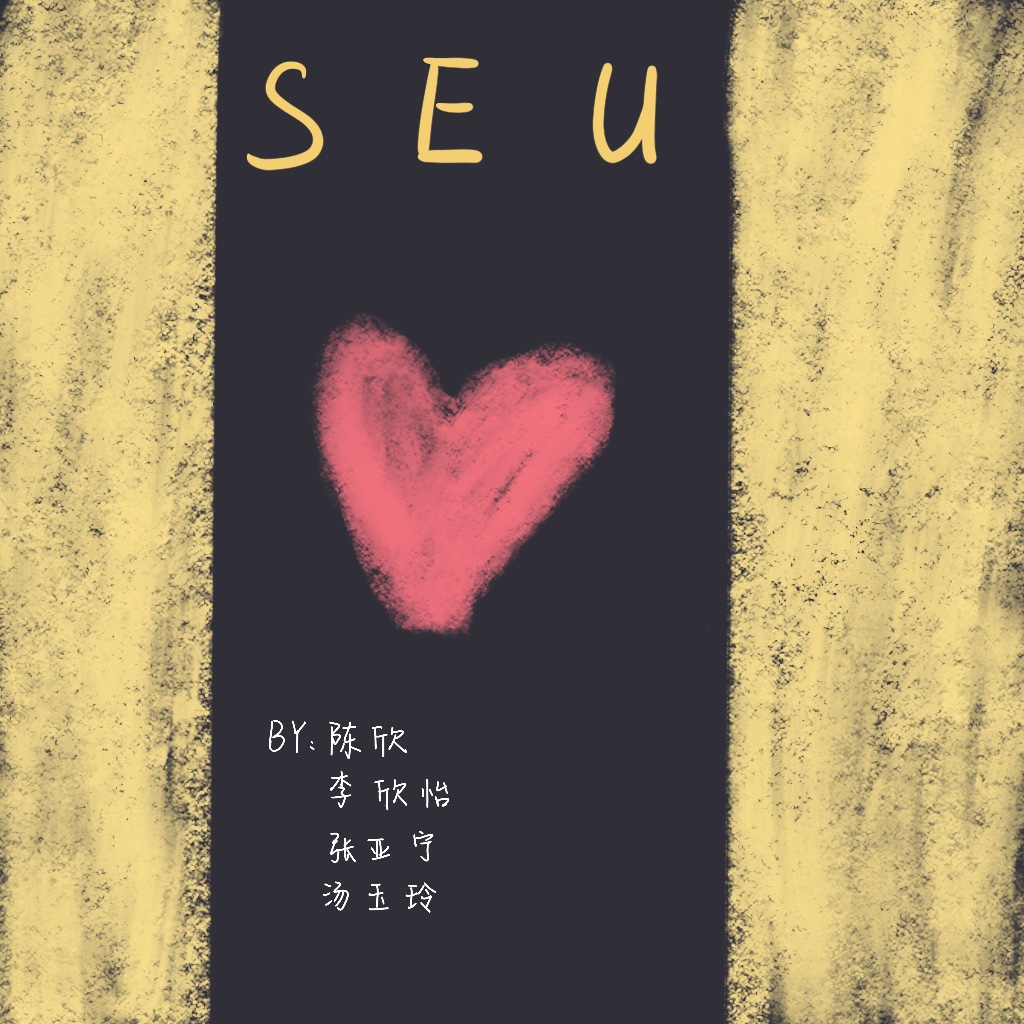 S E U
BY: 陈欣
李欣怡
张亚宁
汤玉玲